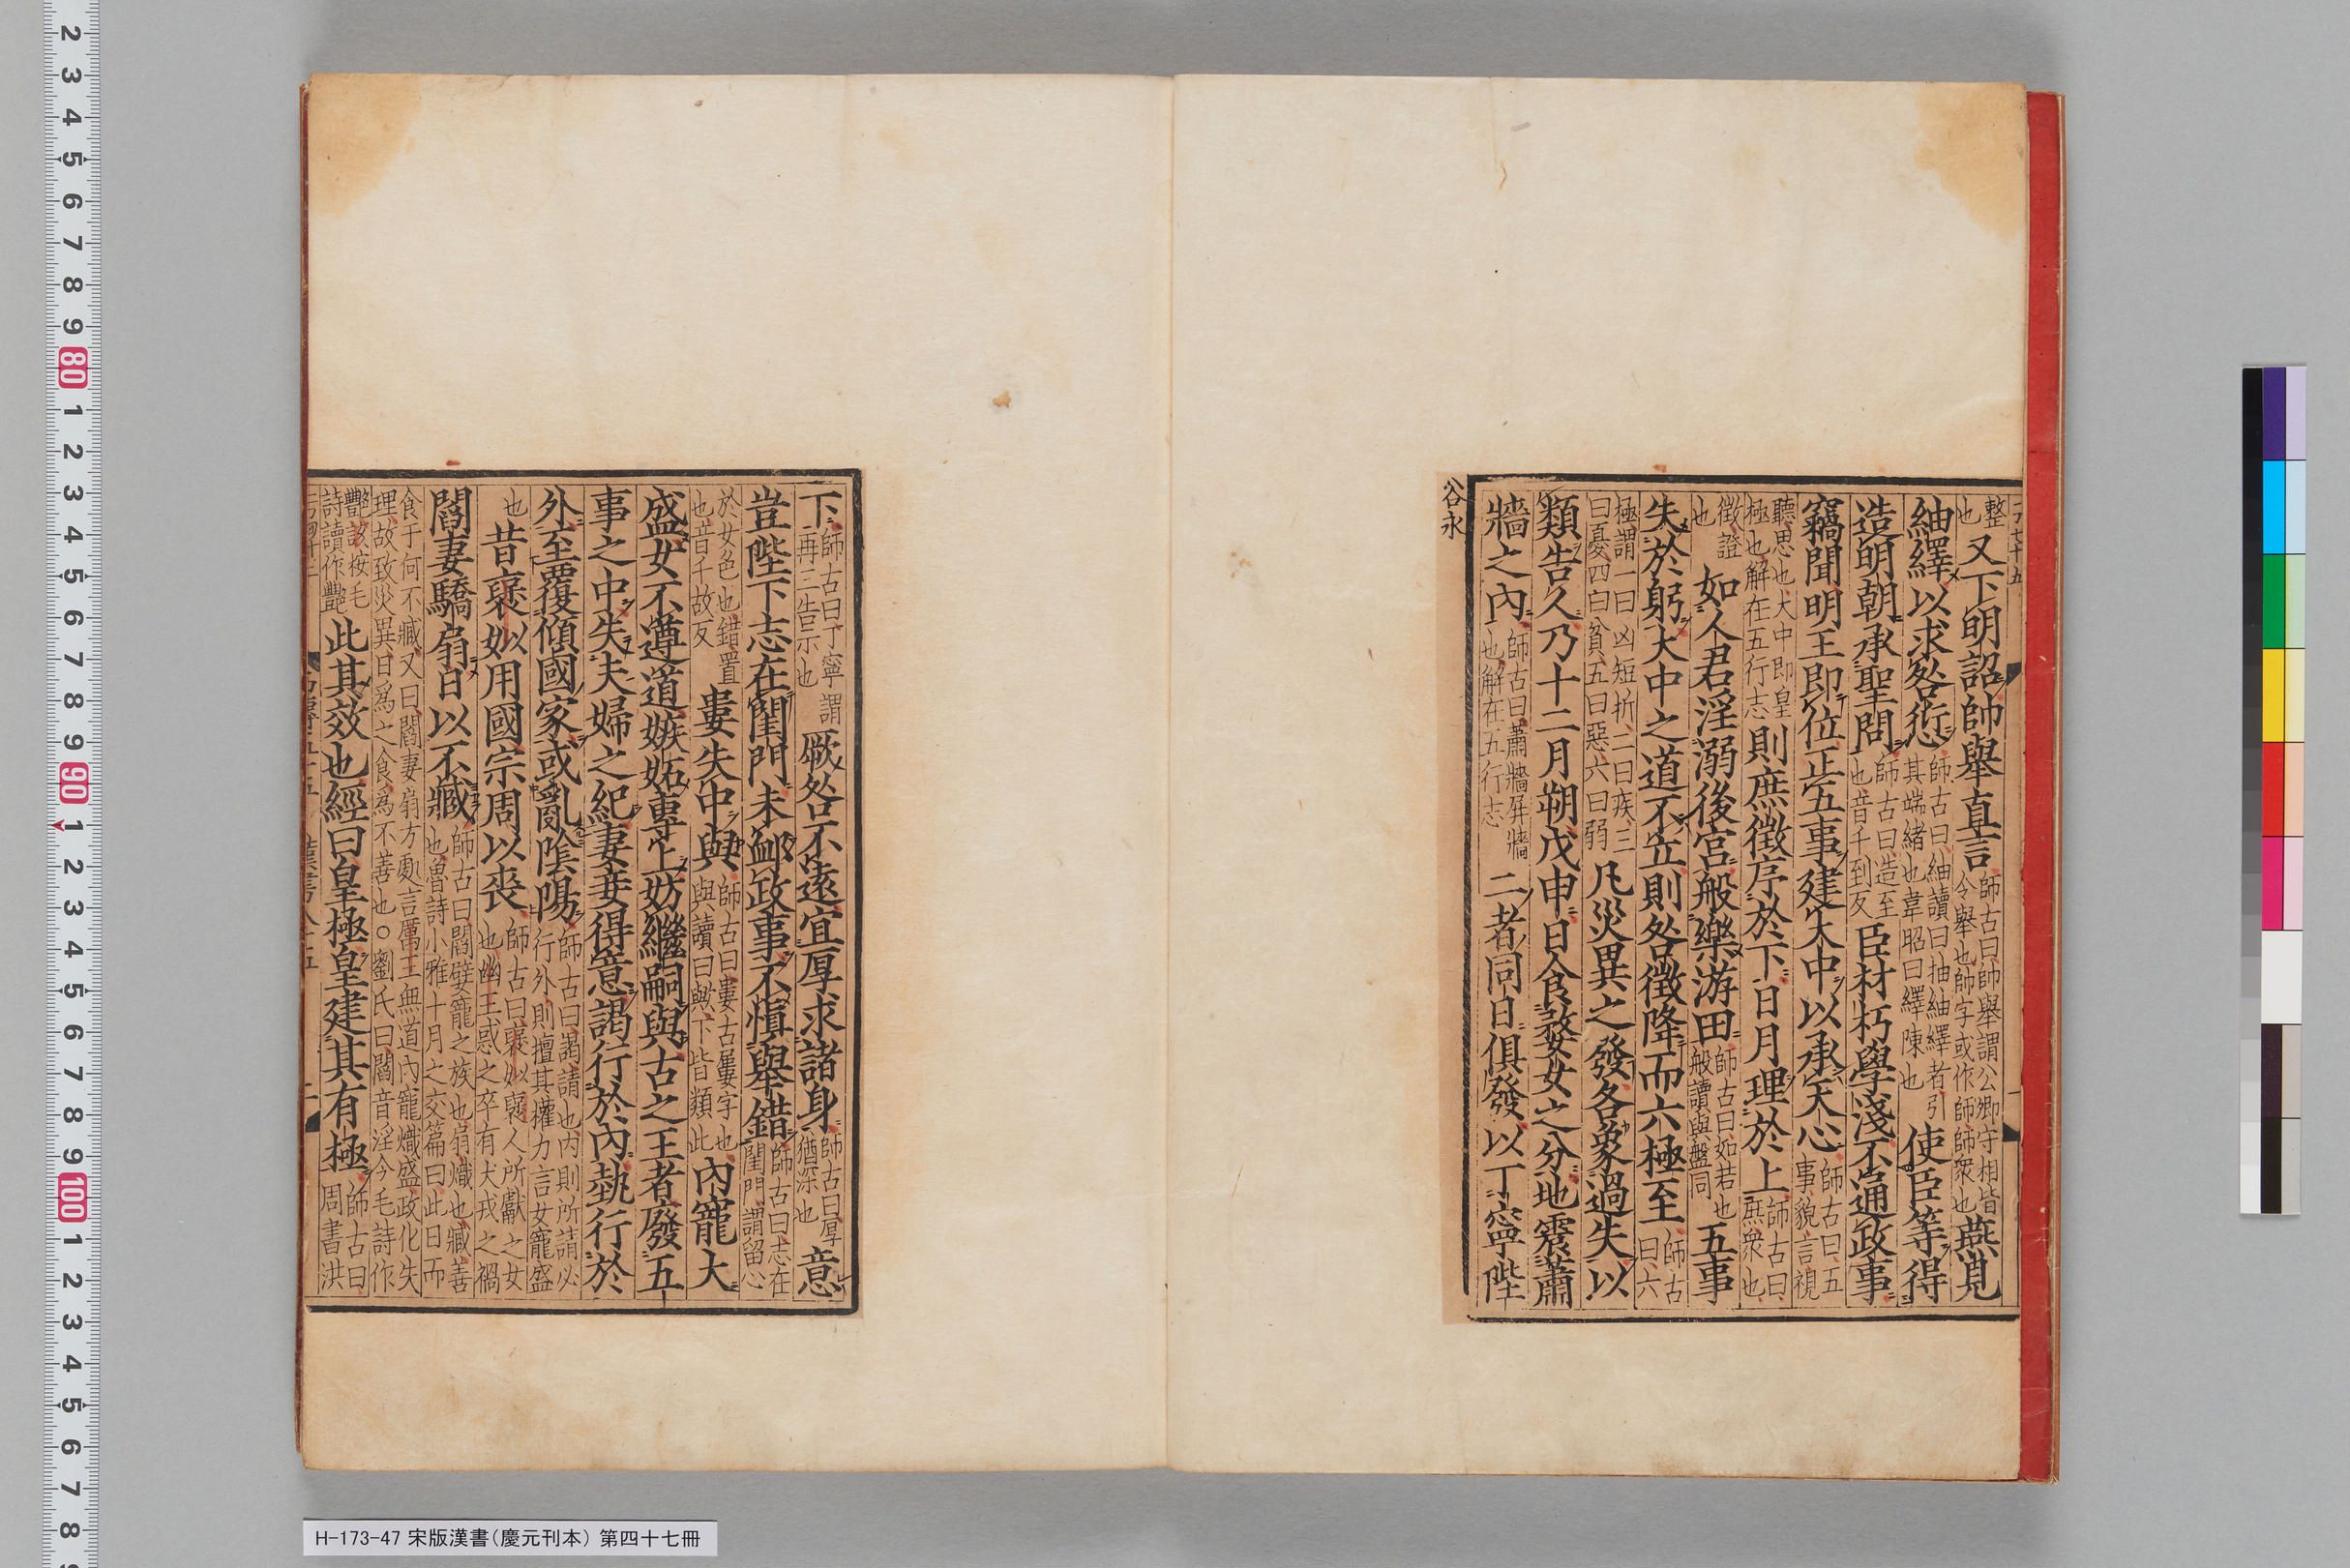 整也又下明詔帥舉直言師古曰帥舉謂公卿守相皆令舉也帥字或作師師衆也燕見
紬繹以求咎愆師古曰紬讀曰抽紬繹者引其端緒也韋昭曰繹陳也使臣等得
造明朝承聖問師古曰造至也音千到反臣材朽學淺不通政事
竊聞明王即位正五事建大中以承天心師古曰五事貌言視
聽思也大中即皇極也解在五行志則庶徵序於下日月理於上師古曰庶衆也
徵證也如人君淫溺後宮般樂游田師古曰如若也般讀與盤同五事
失於躬大中之道不立則咎徵降而六極至師古曰六
極謂一曰凶短折二曰疾三曰憂四曰貧五曰惡六曰弱凡災異之發各象過失以
類告人乃十二月朔戊申日食婺女之分地震蕭
牆之內師古曰蕭牆屏牆也解在五行志二者同日俱發以丁寧陛
谷永
下師古曰丁寧謂再三告示也厥咎不遠宜厚求諸身師古曰厚猶深也意
豈陛下志在閨門未卹政事不慎舉錯師古曰志在閨門謂留心
於女色也錯置也音千故反婁失中與師古曰婁古屢字也與讀曰歟下皆類此內寵大
盛女不遵道嫉妬專上妨繼嗣與古之王者廢五
事之中失夫婦之紀妻妾得意謁行於內埶行於
外至覆傾國家或亂陰陽師古曰謁請也內則所請必行外則擅其權力言女寵盛
也昔褒姒用國宗周以喪師古曰褒姒褒人所獻之女也幽王惑之卒有犬戎之禍
閻妻驕扇日以不臧師古曰閻嬖寵之族也扇熾也臧善也魯詩小雅十月之交篇曰此日而
食于何不臧又曰閻妻扇方處言厲王無道內寵熾盛政化失理故致災異日爲之食爲不善也○劉氏曰閻音淫今毛詩作
豔該按毛詩讀作豔此其效也經曰皇極皇建其有極師古曰周書洪
H-173-47 宋版漢書（慶元刊本） 第四十七冊